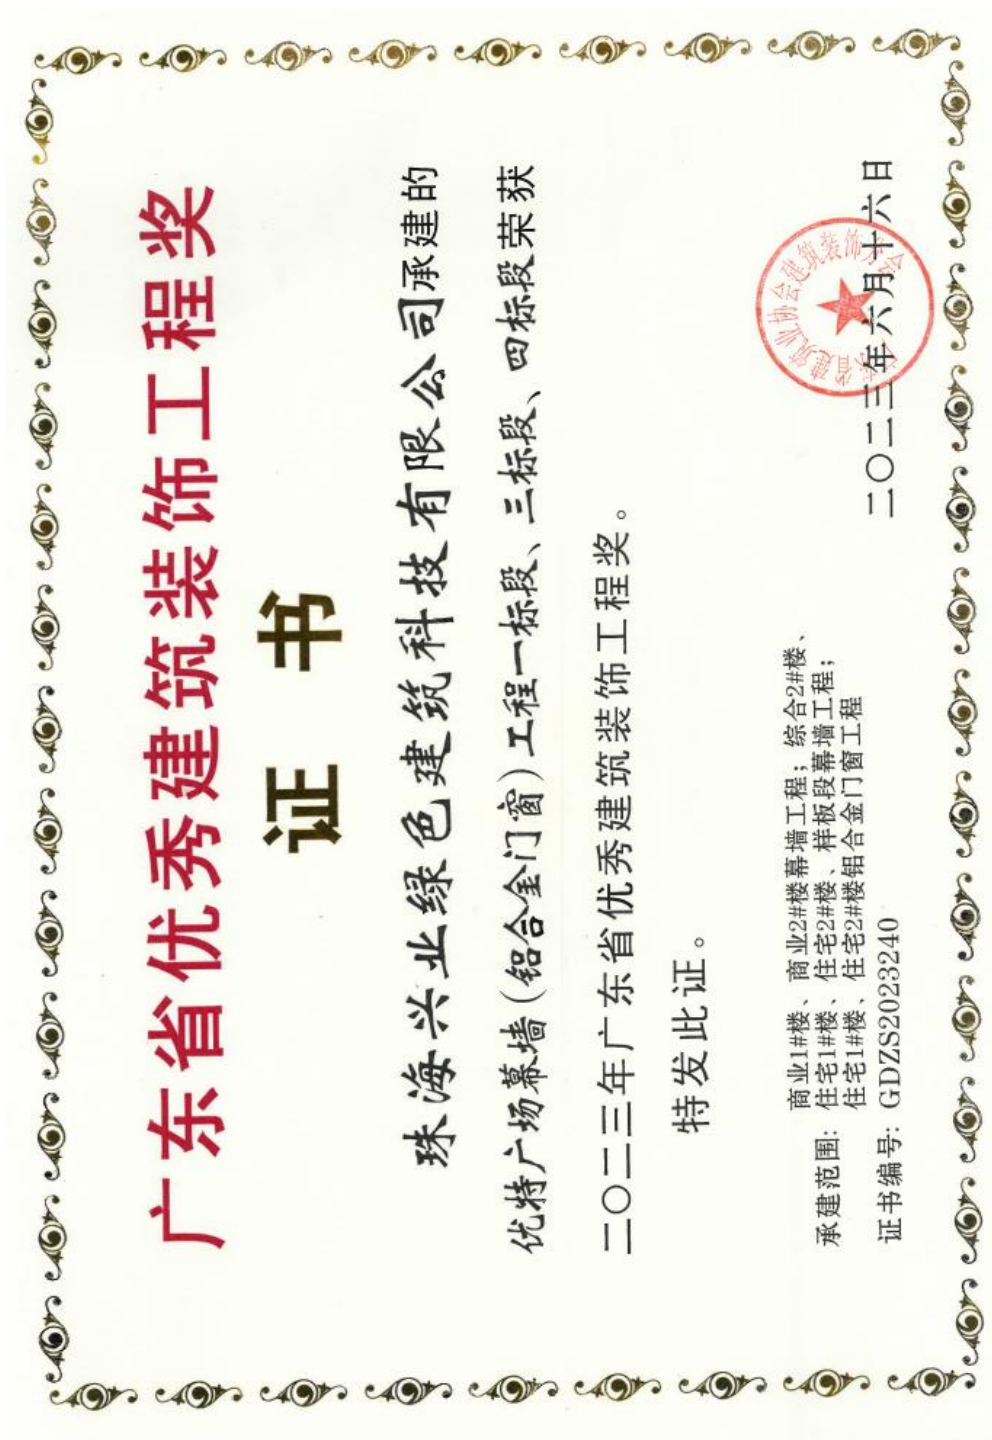 广东省优秀建筑装饰工程奖
证 书
珠海兴业绿色建筑科技有限公司承建的
优特广场幕墙(铝合金门窗)工程一标段、三标段、四标段荣获
二〇二三年广东省优秀建筑装饰工程奖。
特发此证。
承建范围: 商业1#楼、商业2#楼幕墙工程; 综合2#楼、
住宅1#楼、住宅2#楼、样板段幕墙工程;
住宅1#楼、住宅2#楼铝合金门窗工程
证书编号: GDZS2023240
广东省建筑业协会建筑装饰分会
二〇二三年六月十六日